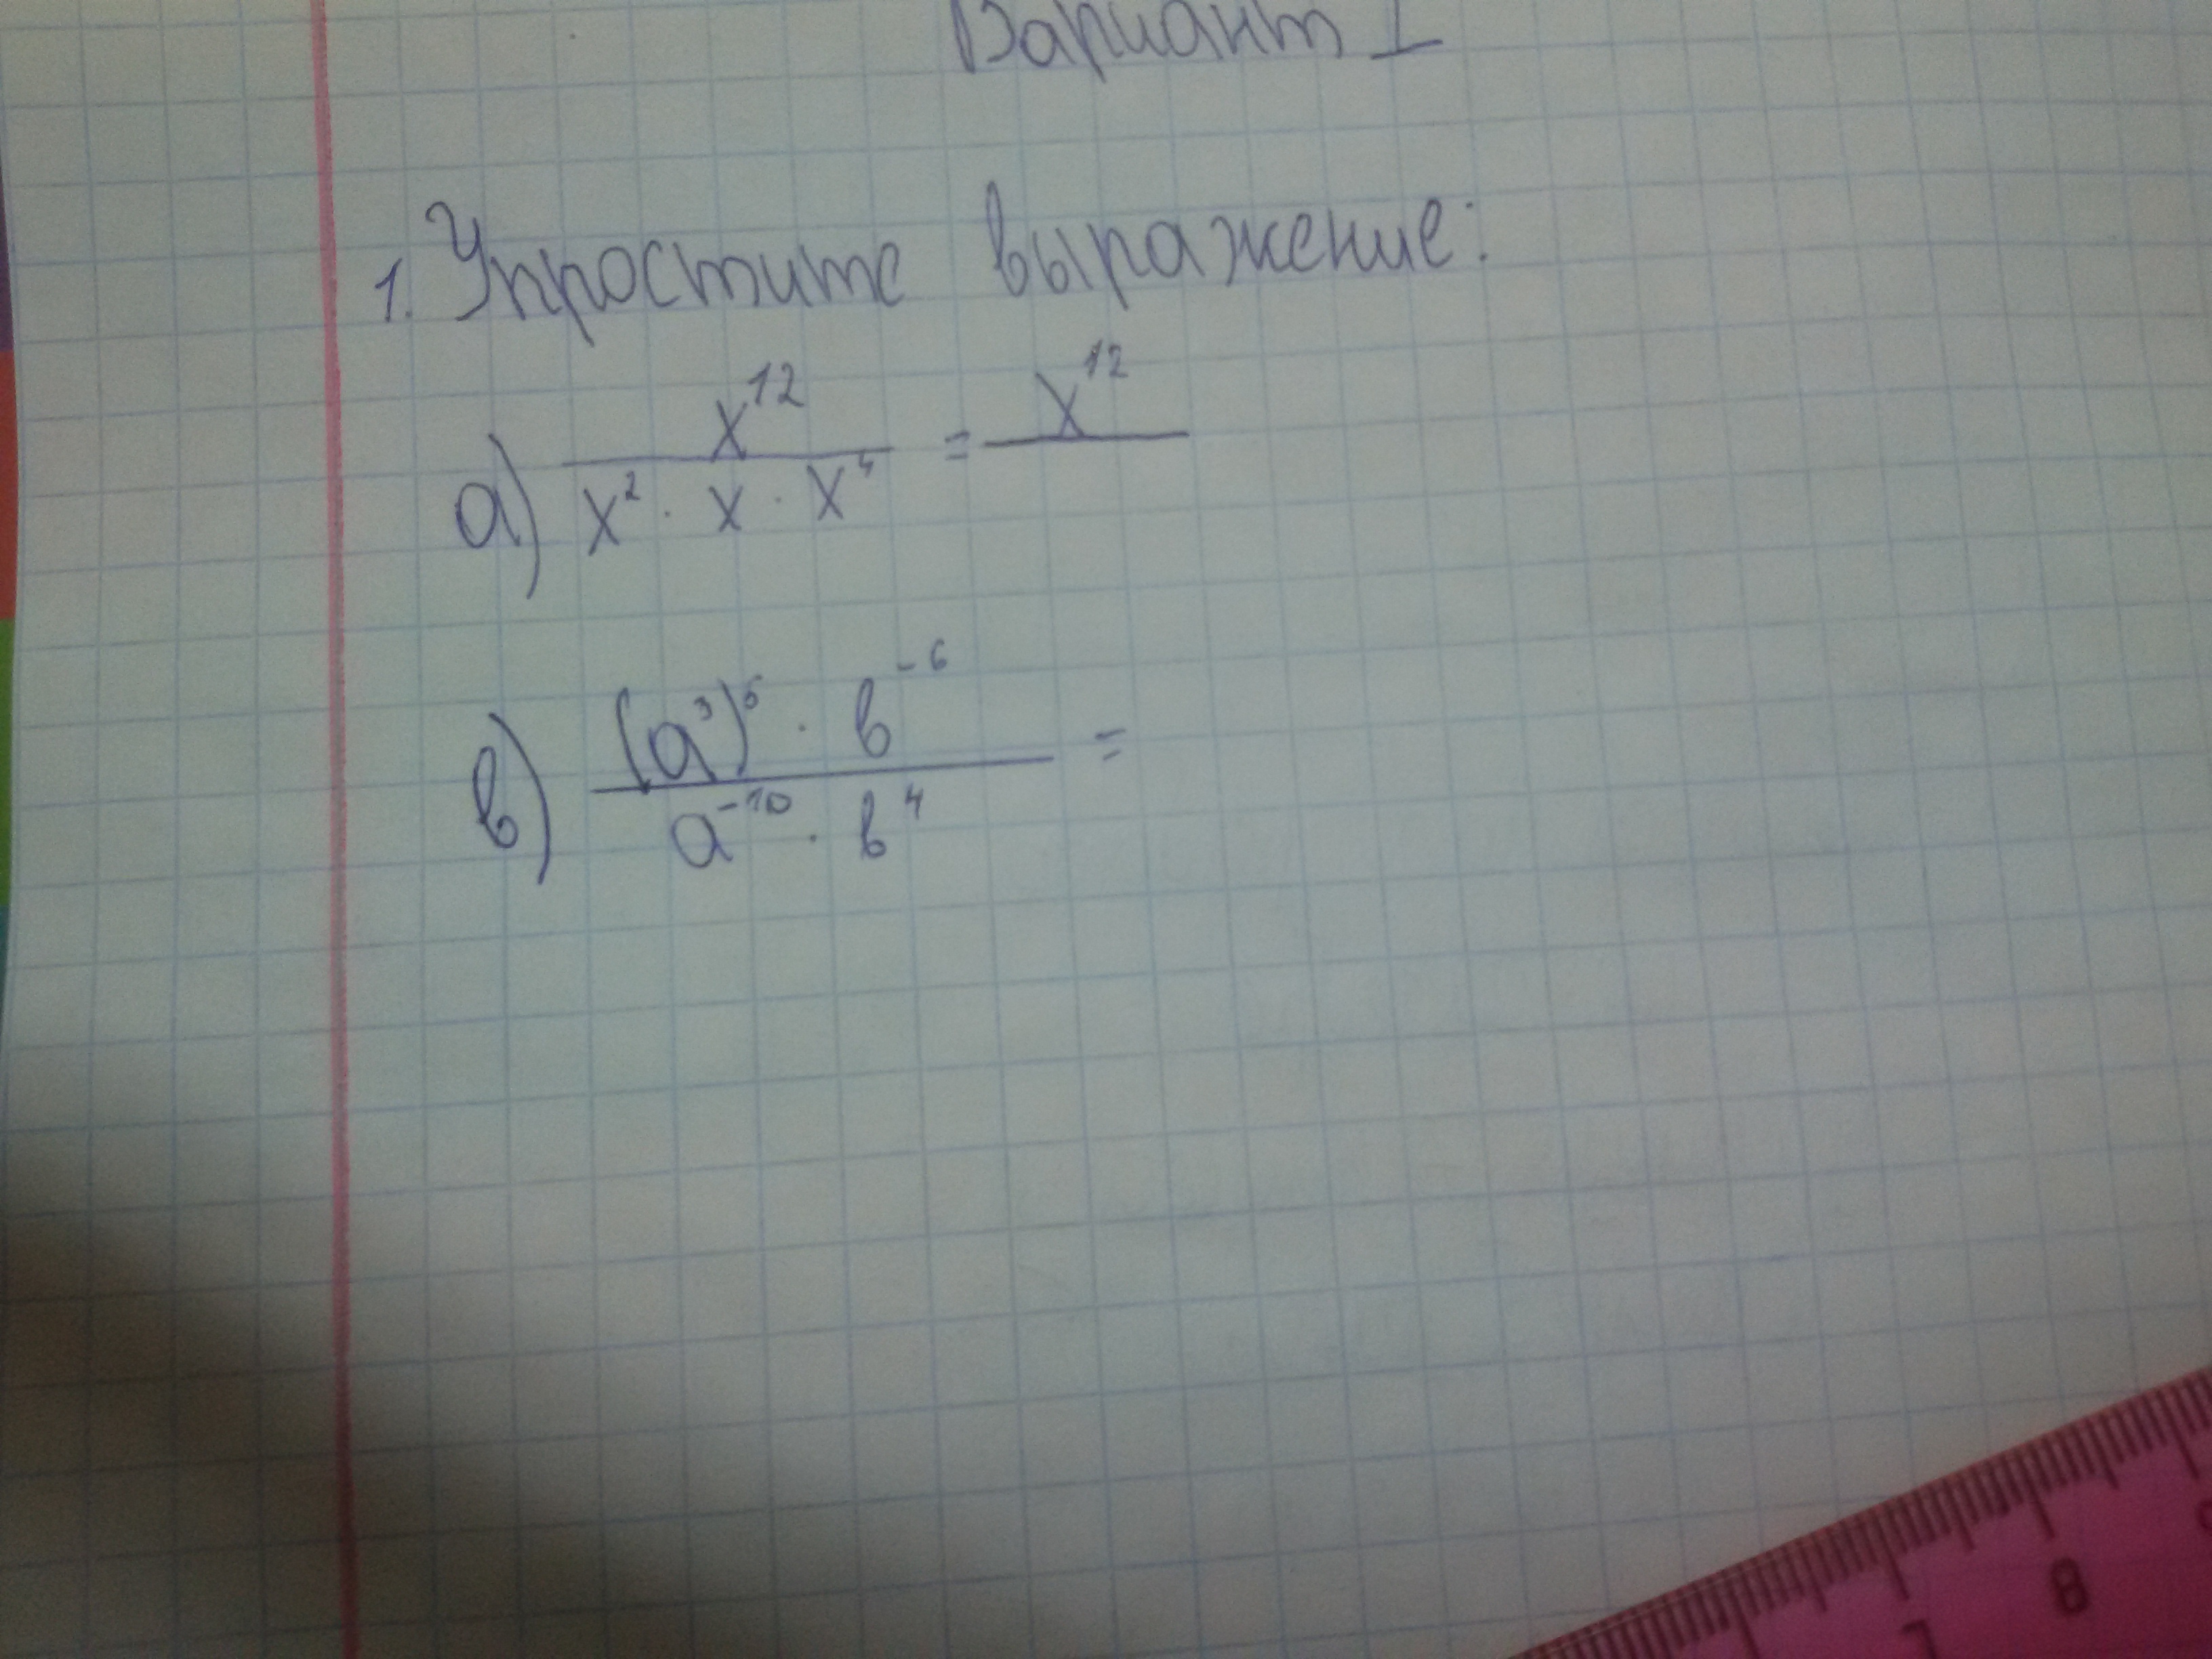 Вариант I
1. Упростите выражение:
а) x¹² / (x² · x · x⁴) = x¹² /
в) ((a³)⁵ · b⁻⁶) / (a⁻¹⁰ · b⁴) =
7 8